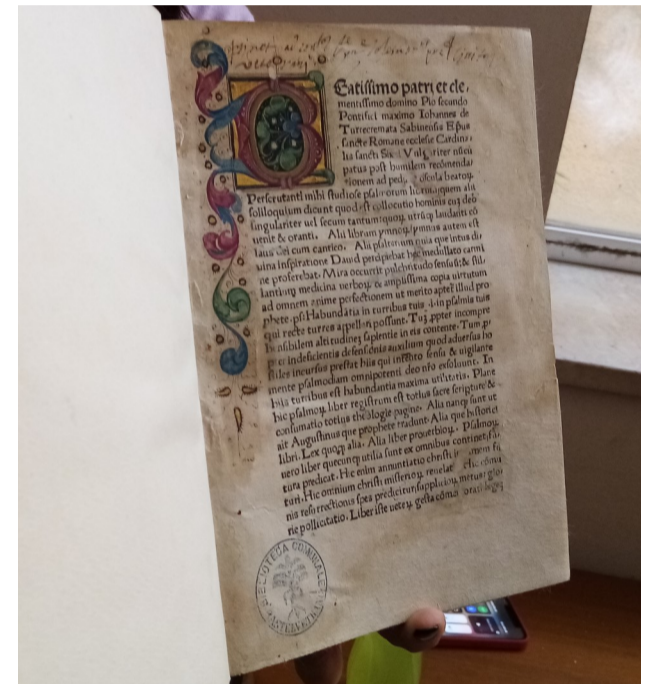 Beatissimo patri et cle,
mentissimo domino Pio secundo
Pontifici maximo Iohannes de
Turrecremata Sabinensis Epus
sancte Romane ecclesie Cardina,
lis sancti Sixti Vulgariter nūcu
patus post humilem recōmenda
tionem ad pedū oscula beatoꝝ.
Perscrutanti mihi studiose psalmorum librum quem alii
soliloquium dicunt quod est collocutio hominis cuꝫ deo
singulariter uel secum tantum quoqꝫ utriqꝫ laudanti cō
uenit & oranti. Alii librum ymnoꝝ ympnus autem est
laus dei cum cantico. Alii psalterium quia que intus di
uina inspiratione Dauid percipiebat hec medullato carmi
ne proferebat. Mira occurrit pulchritudo sensus & stil
lantium medicina uerboꝝ & amplissima copia uirtutum
ad omnem anime perfectionem ut merito aptet̄ illud pro
phete. ps. Habundātia in turribus tuis .i. in psalmis tuis
qui recte turres appellari possunt. Tuꝫ ppter incompre
hensibilem altitudineꝫ sapientie in eis contente. Tum ꝓp
ter indeficientis defensionis auxilium quod aduersus ho
stiles incursus prestat hiis qui intento sensu & uigilante
mente psalmodiam omnipotenti deo nr̄o exsoluunt. In
hiis turribus est habundantia maxima utilitatis. Plane
hic psalmoꝝ liber registrum est totius sacre scripture &
consumatio totius theologie pagine. Alia nanqꝫ sunt ut
ait Augustinus que prophete tradunt. Alia que historici
libri. Lex quoqꝫ alia. Alia liber prouerbioꝝ. Psalmoꝝ
uero liber quecunqꝫ utilia sunt ex omnibus continet, fu
tura predicat. Hic enim annuntiatio christi in carnem uē
turi. Hic omnium christi misterioꝝ reuelatio. Hic cōmu
nis resurrectionis spes predicitur, suppliciorꝝ metus, glo
rie pollicitatio. Liber iste ueterꝫ gesta cōmemorat leges
BIBLIOTECA COMUNALE